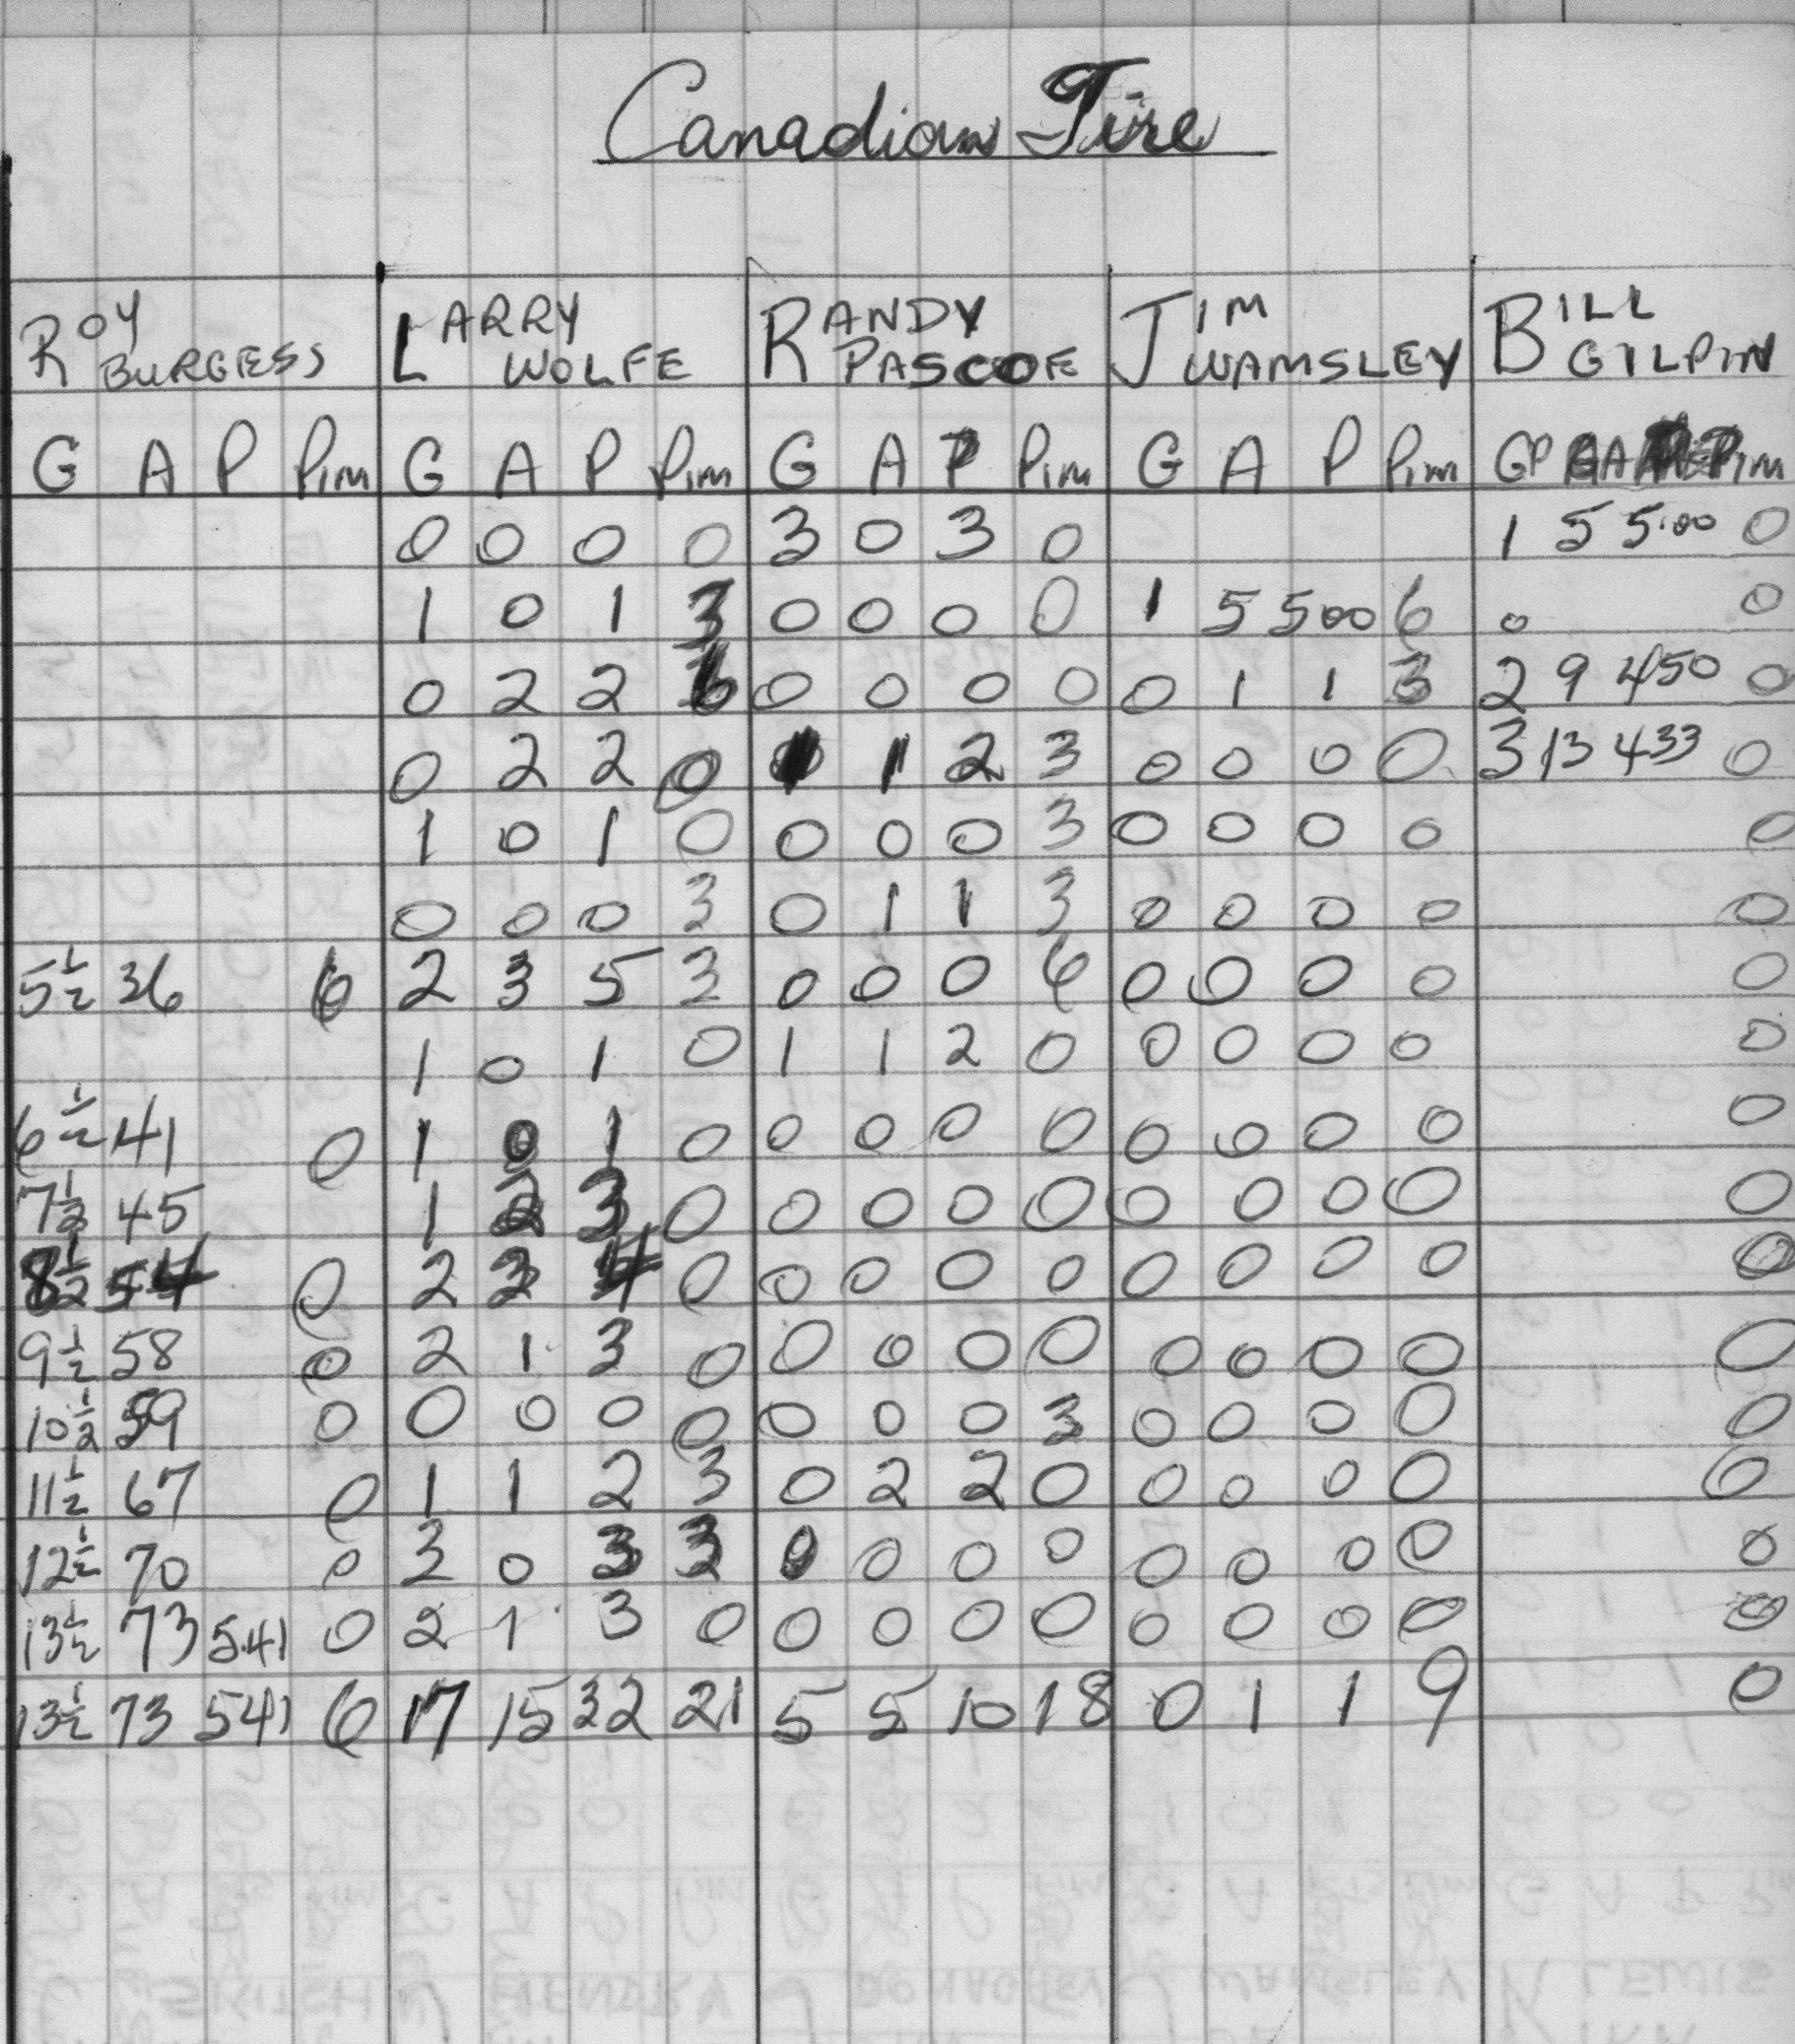 Canadian Tire
ROY BURGESS LARRY WOLFE RANDY PASCOE JIM WAMSLEY BILL GILPIN
G A P Pim G A P Pim G A P Pim G A P Pim GP GA Pim
0 0 0 0 3 0 3 0 1 5 5.00 0
1 0 1 3 0 0 0 0 1 5 500 6 0 0
0 2 2 6 0 0 0 0 0 1 1 3 2 9 450 0
0 2 2 0 1 1 2 3 0 0 0 0 3 13 433 0
1 0 1 0 0 0 0 3 0 0 0 0 0
0 0 0 3 0 1 1 3 0 0 0 0 0
5½ 36 6 2 3 5 3 0 0 0 6 0 0 0 0 0
1 0 1 0 1 1 2 0 0 0 0 0 0
6½ 41 0 1 0 1 0 0 0 0 0 0 0 0 0 0
7½ 45 1 2 3 0 0 0 0 0 0 0 0 0 0
8½ 54 0 2 3 4 0 0 0 0 0 0 0 0 0 0
9½ 58 0 2 1 3 0 0 0 0 0 0 0 0 0 0
10½ 59 0 0 0 0 0 0 0 0 3 0 0 0 0 0
11½ 67 0 1 1 2 3 0 2 2 0 0 0 0 0 0
12½ 70 0 3 0 3 3 0 0 0 0 0 0 0 0 0
13½ 73 5.41 0 2 1 3 0 0 0 0 0 0 0 0 0 0
13½ 73 541 6 17 15 32 21 5 5 10 18 0 1 1 9 0